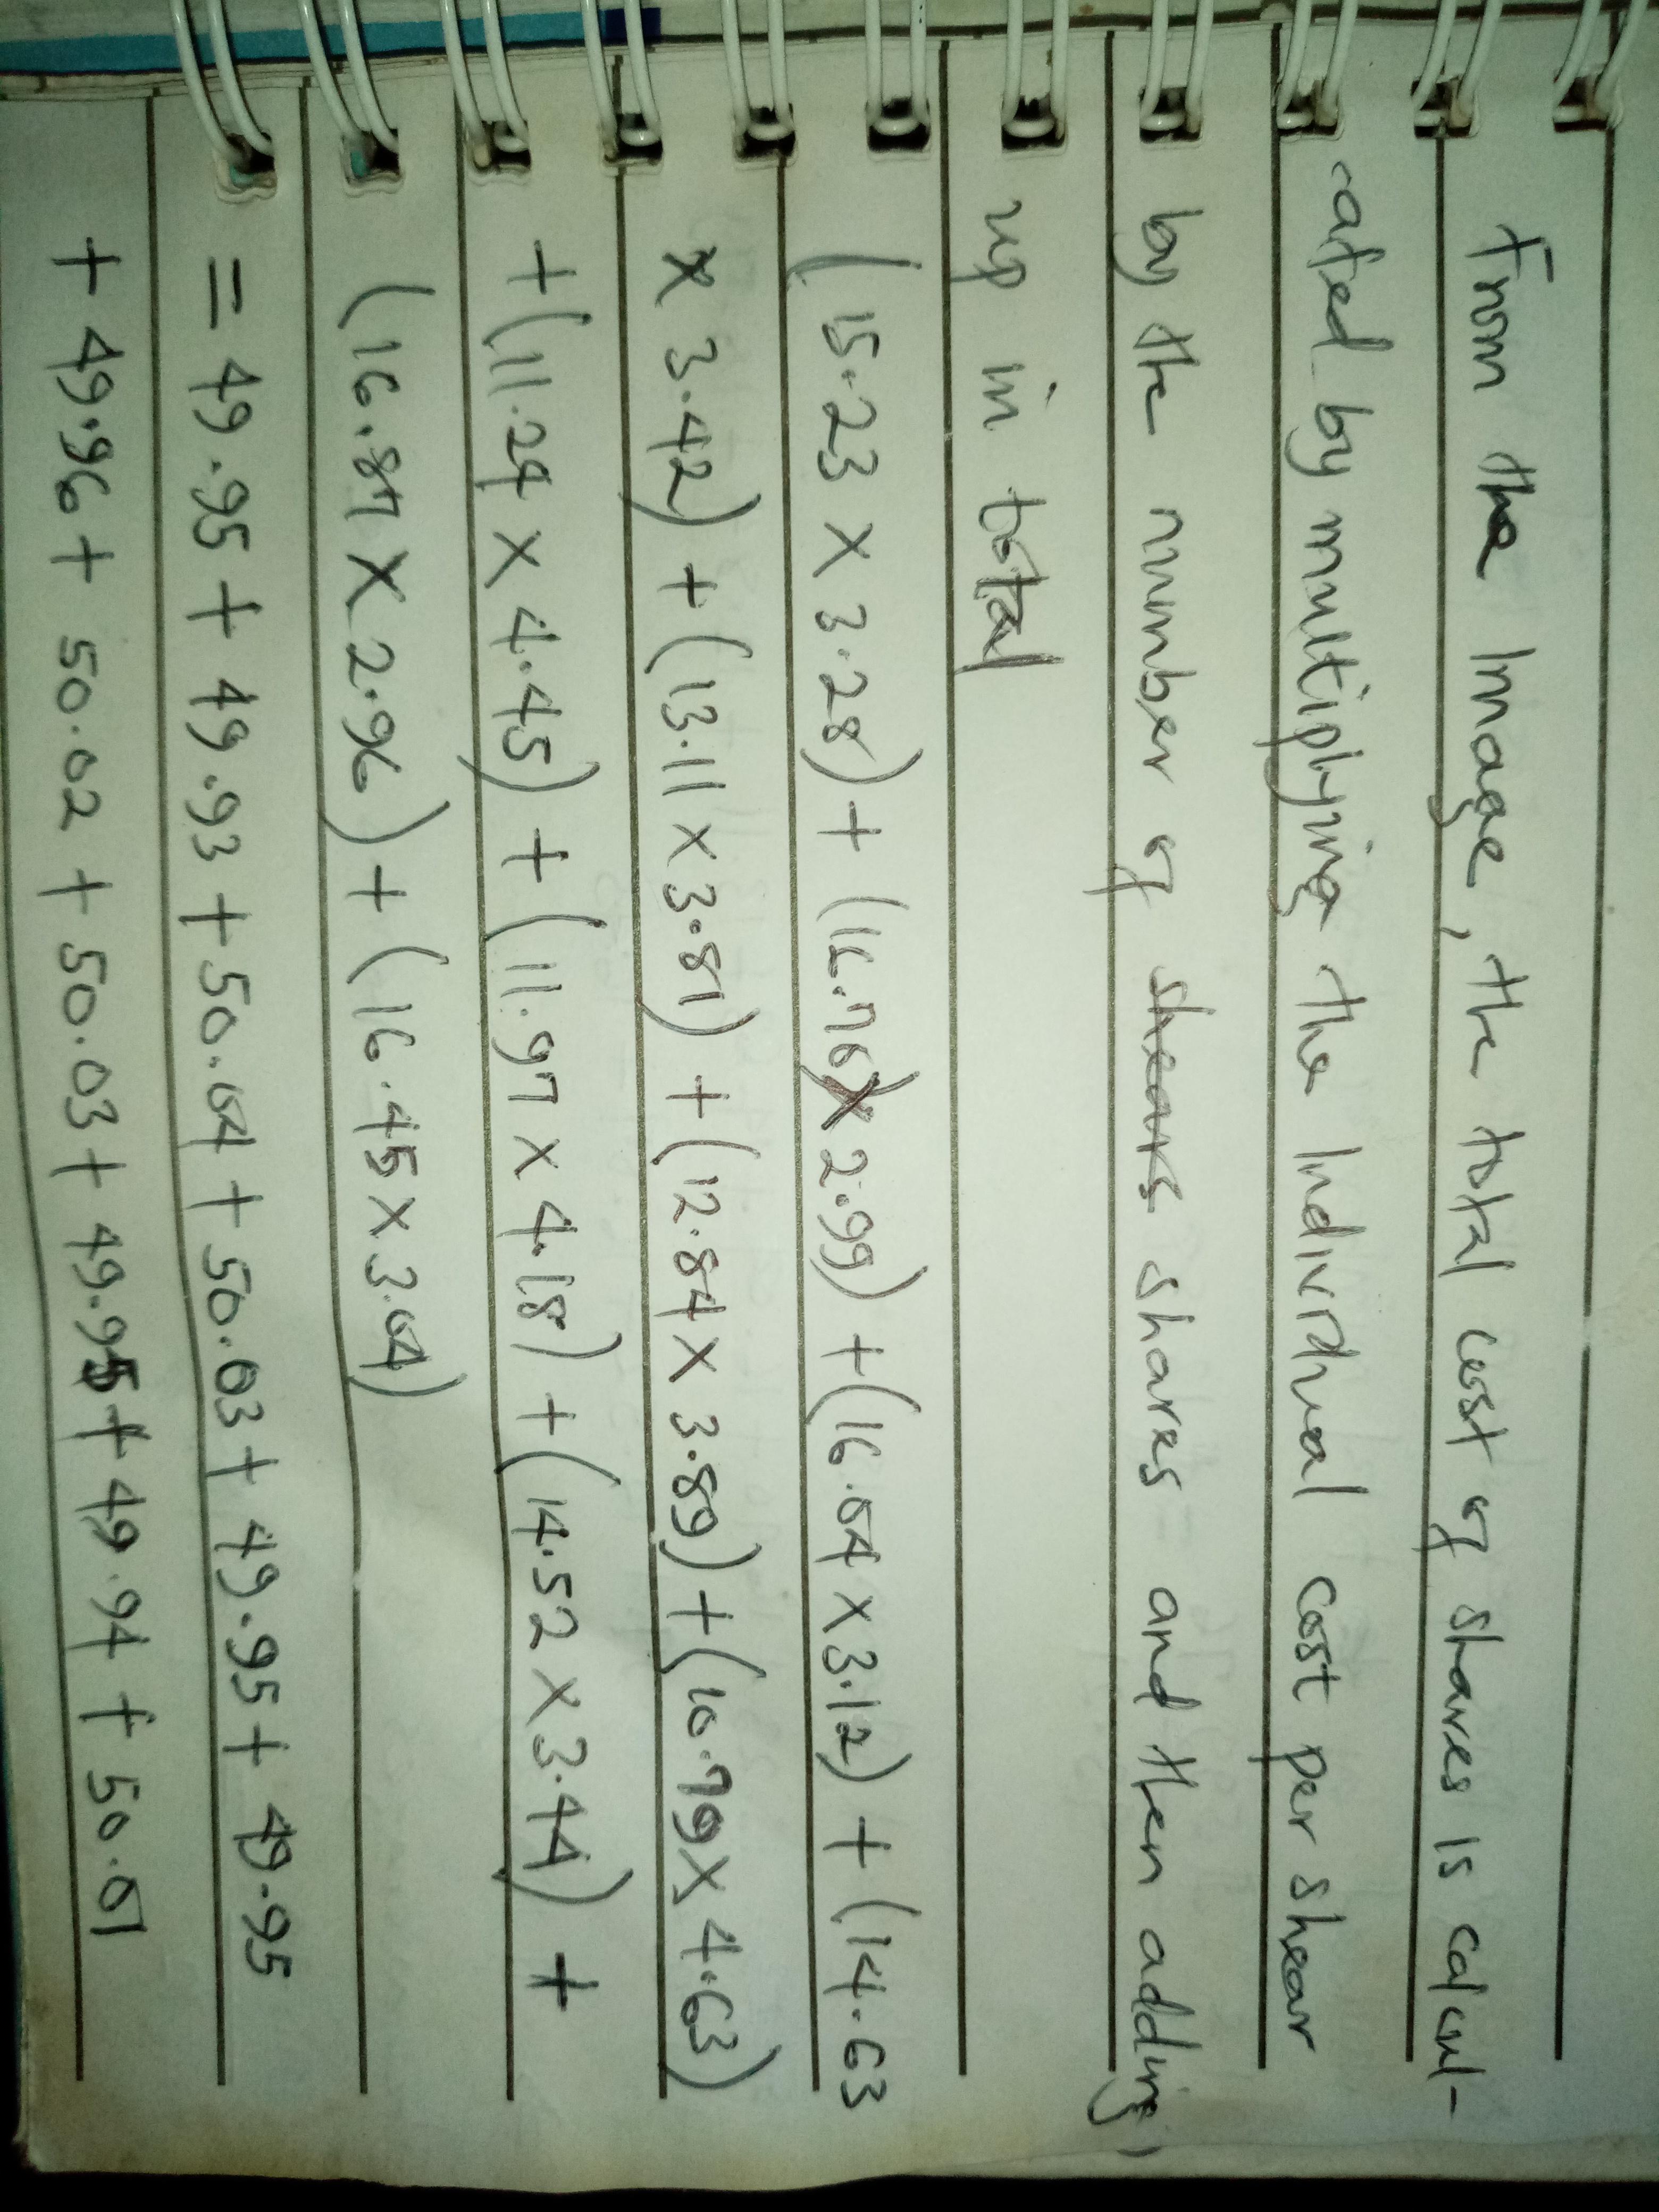 From the Image, the total cost of shares is calcul-
ated by multiplying the Individual cost per shear
by the number of shears shares and then adding,
up in total
(15.23 x 3.28) + (16.70 x 2.99) + (16.04 x 3.12) + (14.63
x 3.42) + (13.11 x 3.81) + (12.84 x 3.89) + (10.79 x 4.63)
+ (11.24 x 4.45) + (11.97 x 4.18) + (14.52 x 3.44) +
(16.87 x 2.96) + (16.45 x 3.04)
= 49.95 + 49.93 + 50.04 + 50.03 + 49.95 + 49.95
+ 49.96 + 50.02 + 50.03 + 49.95 + 49.94 + 50.01